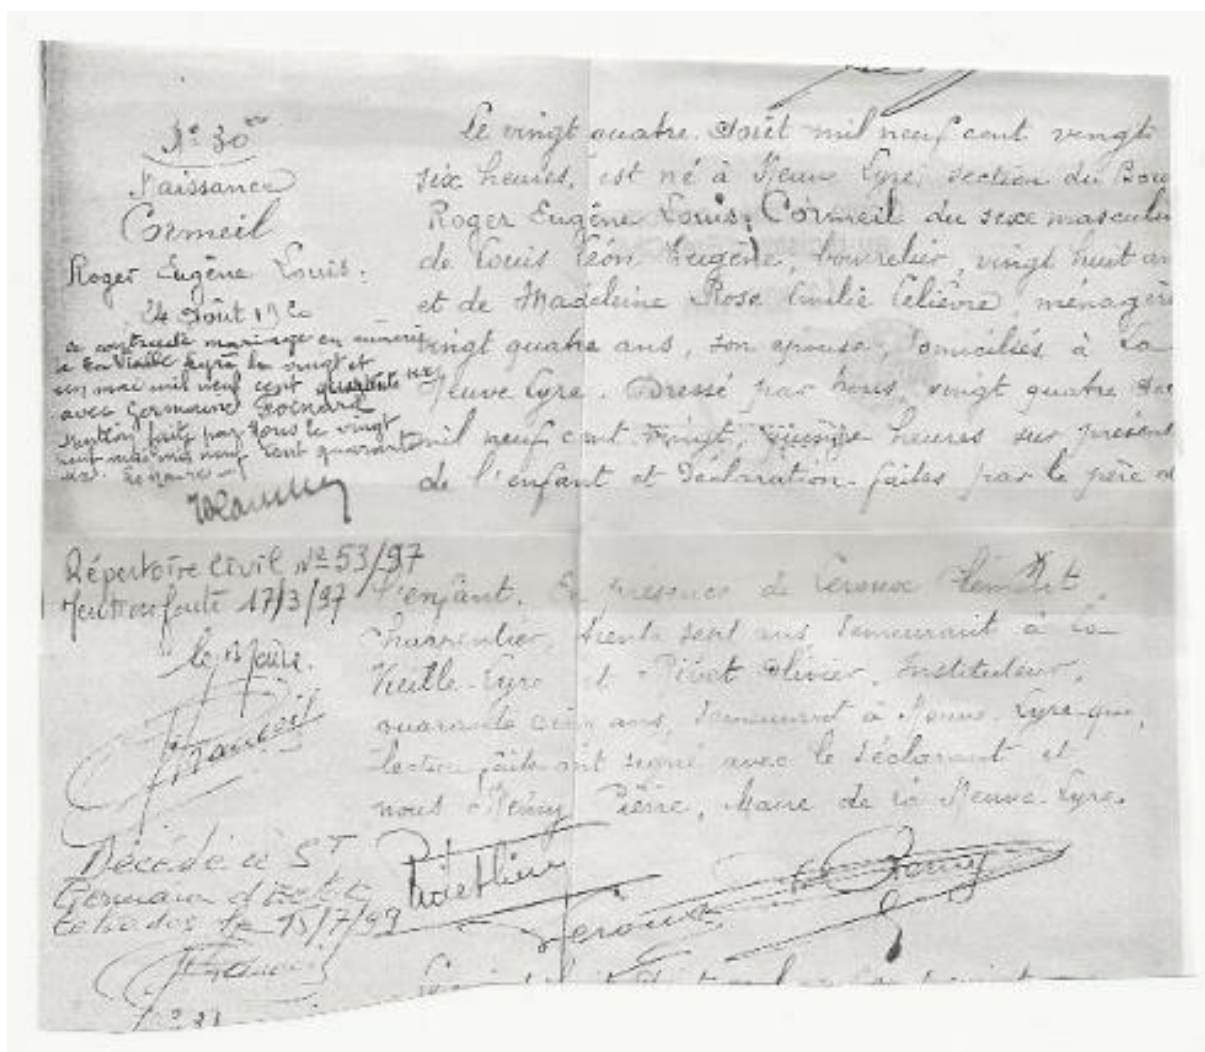 N° 30
Naissance
Cormeil
Roger Eugène Louis.
24 Août 1920
a contracté mariage en mairie
de La Vieille Lyre le vingt et
un mai mil neuf cent quarante
avec Germaine
mention faite par Nous le vingt
neuf mai mil neuf cent quarante
Le Maire
Répertoire Civil N° 53/97
Mention faite 17/3/97
le Maire.
Décédé à St
Germain
le 15/7/99
N° 31
Le vingt quatre Août mil neuf cent vingt
six heures, est né à Neuve Lyre, section du Bou
Roger Eugène Louis, Cormeil du sexe masculin
de Louis Léon Eugène, bourrelier, vingt huit an
et de Madeleine Rose Emilie Lelièvre, ménagère
vingt quatre ans, son épouse, domiciliés à La
Neuve Lyre. Dressé par nous, vingt quatre Août
mil neuf cent vingt, heures sur présent
de l'enfant et déclaration faites par le père d
l'enfant. En présence de Leroux
charpentier, trente sept ans demeurant à La
Vieille-Lyre et Pivet Olivier, Instituteur,
quarante cinq ans, demeurant à Neuve-Lyre qui,
lecture faite ont signé avec le déclarant et
nous Pierre, Maire de la Neuve-Lyre.
Leroux